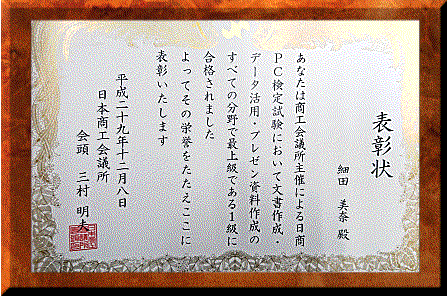 表彰状
細田 美奈 殿
あなたは商工会議所主催による日商
PC検定試験において文書作成・
データ活用・プレゼン資料作成の
すべての分野で最上級である1級に
合格されました
よってその栄誉をたたえここに
表彰いたします
平成二十九年十二月八日
日本商工会議所
会頭 三村 明夫